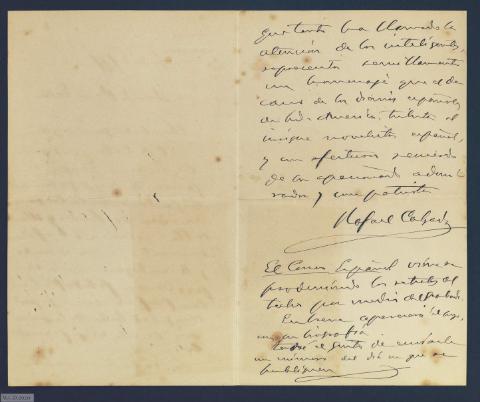 que tanto ha llamado la
atención de los inteligentes,
representa sencillamente
un homenaje que el de-
cano de los diarios españoles
de Sud América tributa al
insigne novelista español,
y un afectuoso recuerdo
de su apasionado admi-
rador y compatriota
Rafael Calzada
El Correo Español viene
produciendo los retratos de
por medio del grabado.
En breve aparecerá el suyo,
con su biografía
tendré el gusto de enviarle
un número del día en que se
publiquen